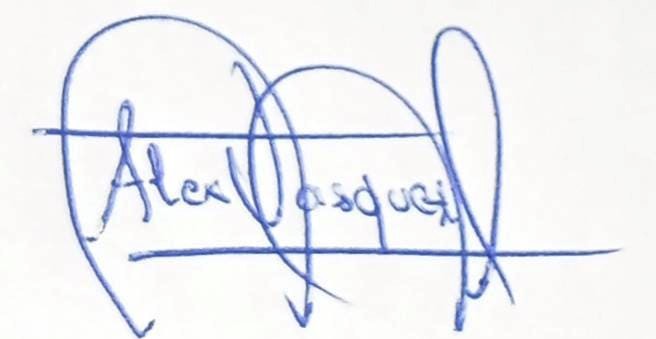 Alex Vasquez